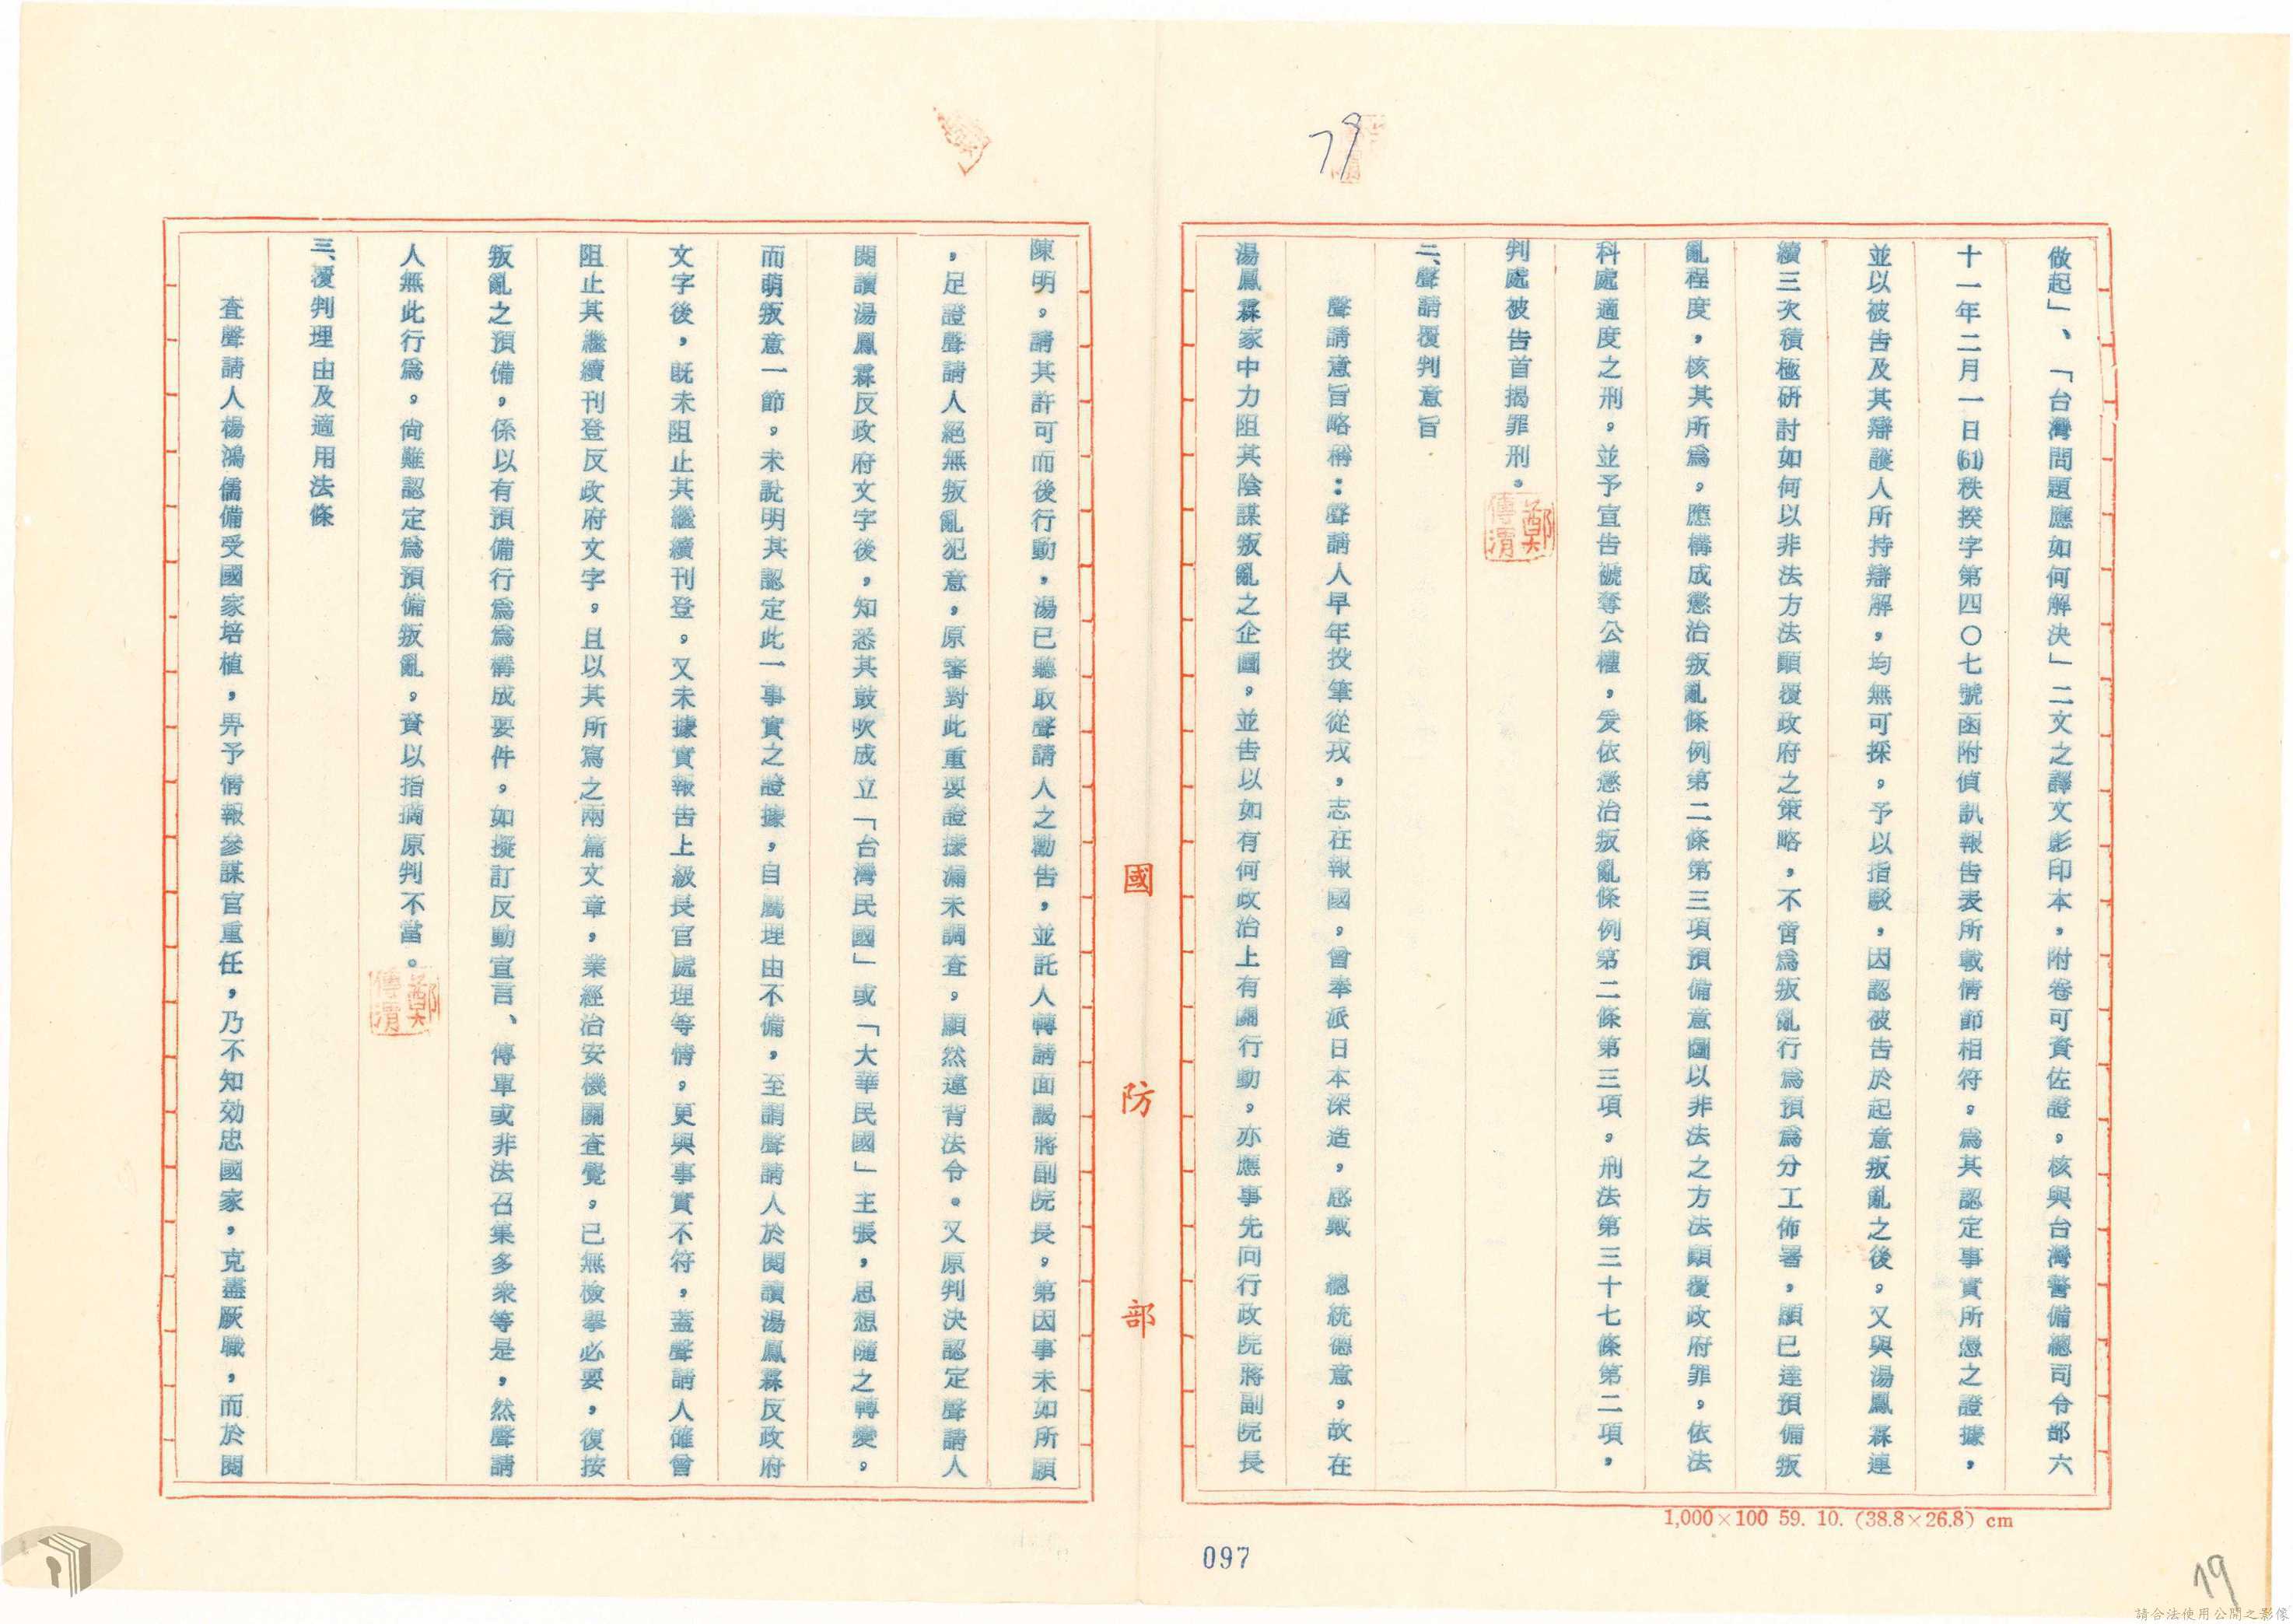 做起」、「台灣問題應如何解決」二文之譯文影印本，附卷可資佐證。核與台灣警備總司令部六
十一年二月一日(61)秩揆字第四〇七號函附偵訊報告表所載情節相符。為其認定事實所憑之證據，
並以被告及其辯護人所持辯解，均無可採。予以指駁，因認被告於起意叛亂之後。又與湯鳳霖連
續三次積極研討如何以非法方法顛覆政府之策略，不啻為叛亂行為預為分工佈署，顯已達預備叛
亂程度，核其所為，應構成懲治叛亂條例第二條第三項預備意圖以非法之方法顛覆政府罪。依法
科處適度之刑。並予宣告褫奪公權，爰依懲治叛亂條例第二條第三項，刑法第三十七條第二項，
判處被告首揭罪刑。
鄭傳渭
二、聲請覆判意旨
聲請意旨略稱：聲請人早年投筆從戎，志在報國。曾奉派日本深造，感戴　總統德意。故在
湯鳳霖家中力阻其陰謀叛亂之企圖，並告以如有何政治上有關行動，亦應事先向行政院蔣副院長
國防部
陳明。請其許可而後行動，湯已聽取聲請人之勸告，並託人轉請面謁蔣副院長。第因事未如所願
，足證聲請人絕無叛亂犯意，原審對此重要證據漏未調查。顯然違背法令。又原判決認定聲請人
閱讀湯鳳霖反政府文字後，知悉其鼓吹成立「台灣民國」或「大華民國」主張，思想隨之轉變。
而萌叛意一節。未說明其認定此一事實之證據，自屬理由不備。至謂聲請人於閱讀湯鳳霖反政府
文字後，既未阻止其繼續刊登。又未據實報告上級長官處理等情。更與事實不符，蓋聲請人確曾
阻止其繼續刊登反政府文字。且以其所寫之兩篇文章，業經治安機關查覺。已無檢舉必要，復按
叛亂之預備，係以有預備行為為構成要件。如擬訂反動宣言、傳單或非法召集多眾等是，然聲請
人無此行為。尚難認定為預備叛亂。資以指摘原判不當。
鄭傳渭
三、覆判理由及適用法條
查聲請人楊鴻儒備受國家培植，畀予情報參謀官重任，乃不知効忠國家，克盡厥職，而於閱
1,000×100 59. 10. (38.8×26.8) cm
097
79
19
請合法使用公開之影像